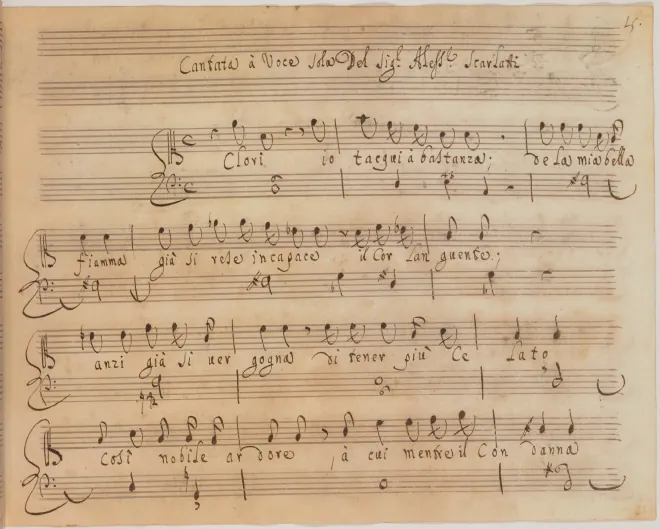 45.
Cantata à Voce sola Del Sig.r Aless.o Scarlatti
Clori io tacqui à bastanza; de la mia bella
fiamma già si rese incapace il Cor languente;
anzi già si uergogna di tener più Celato
Così nobile ardore, à cui mentre il Condanna